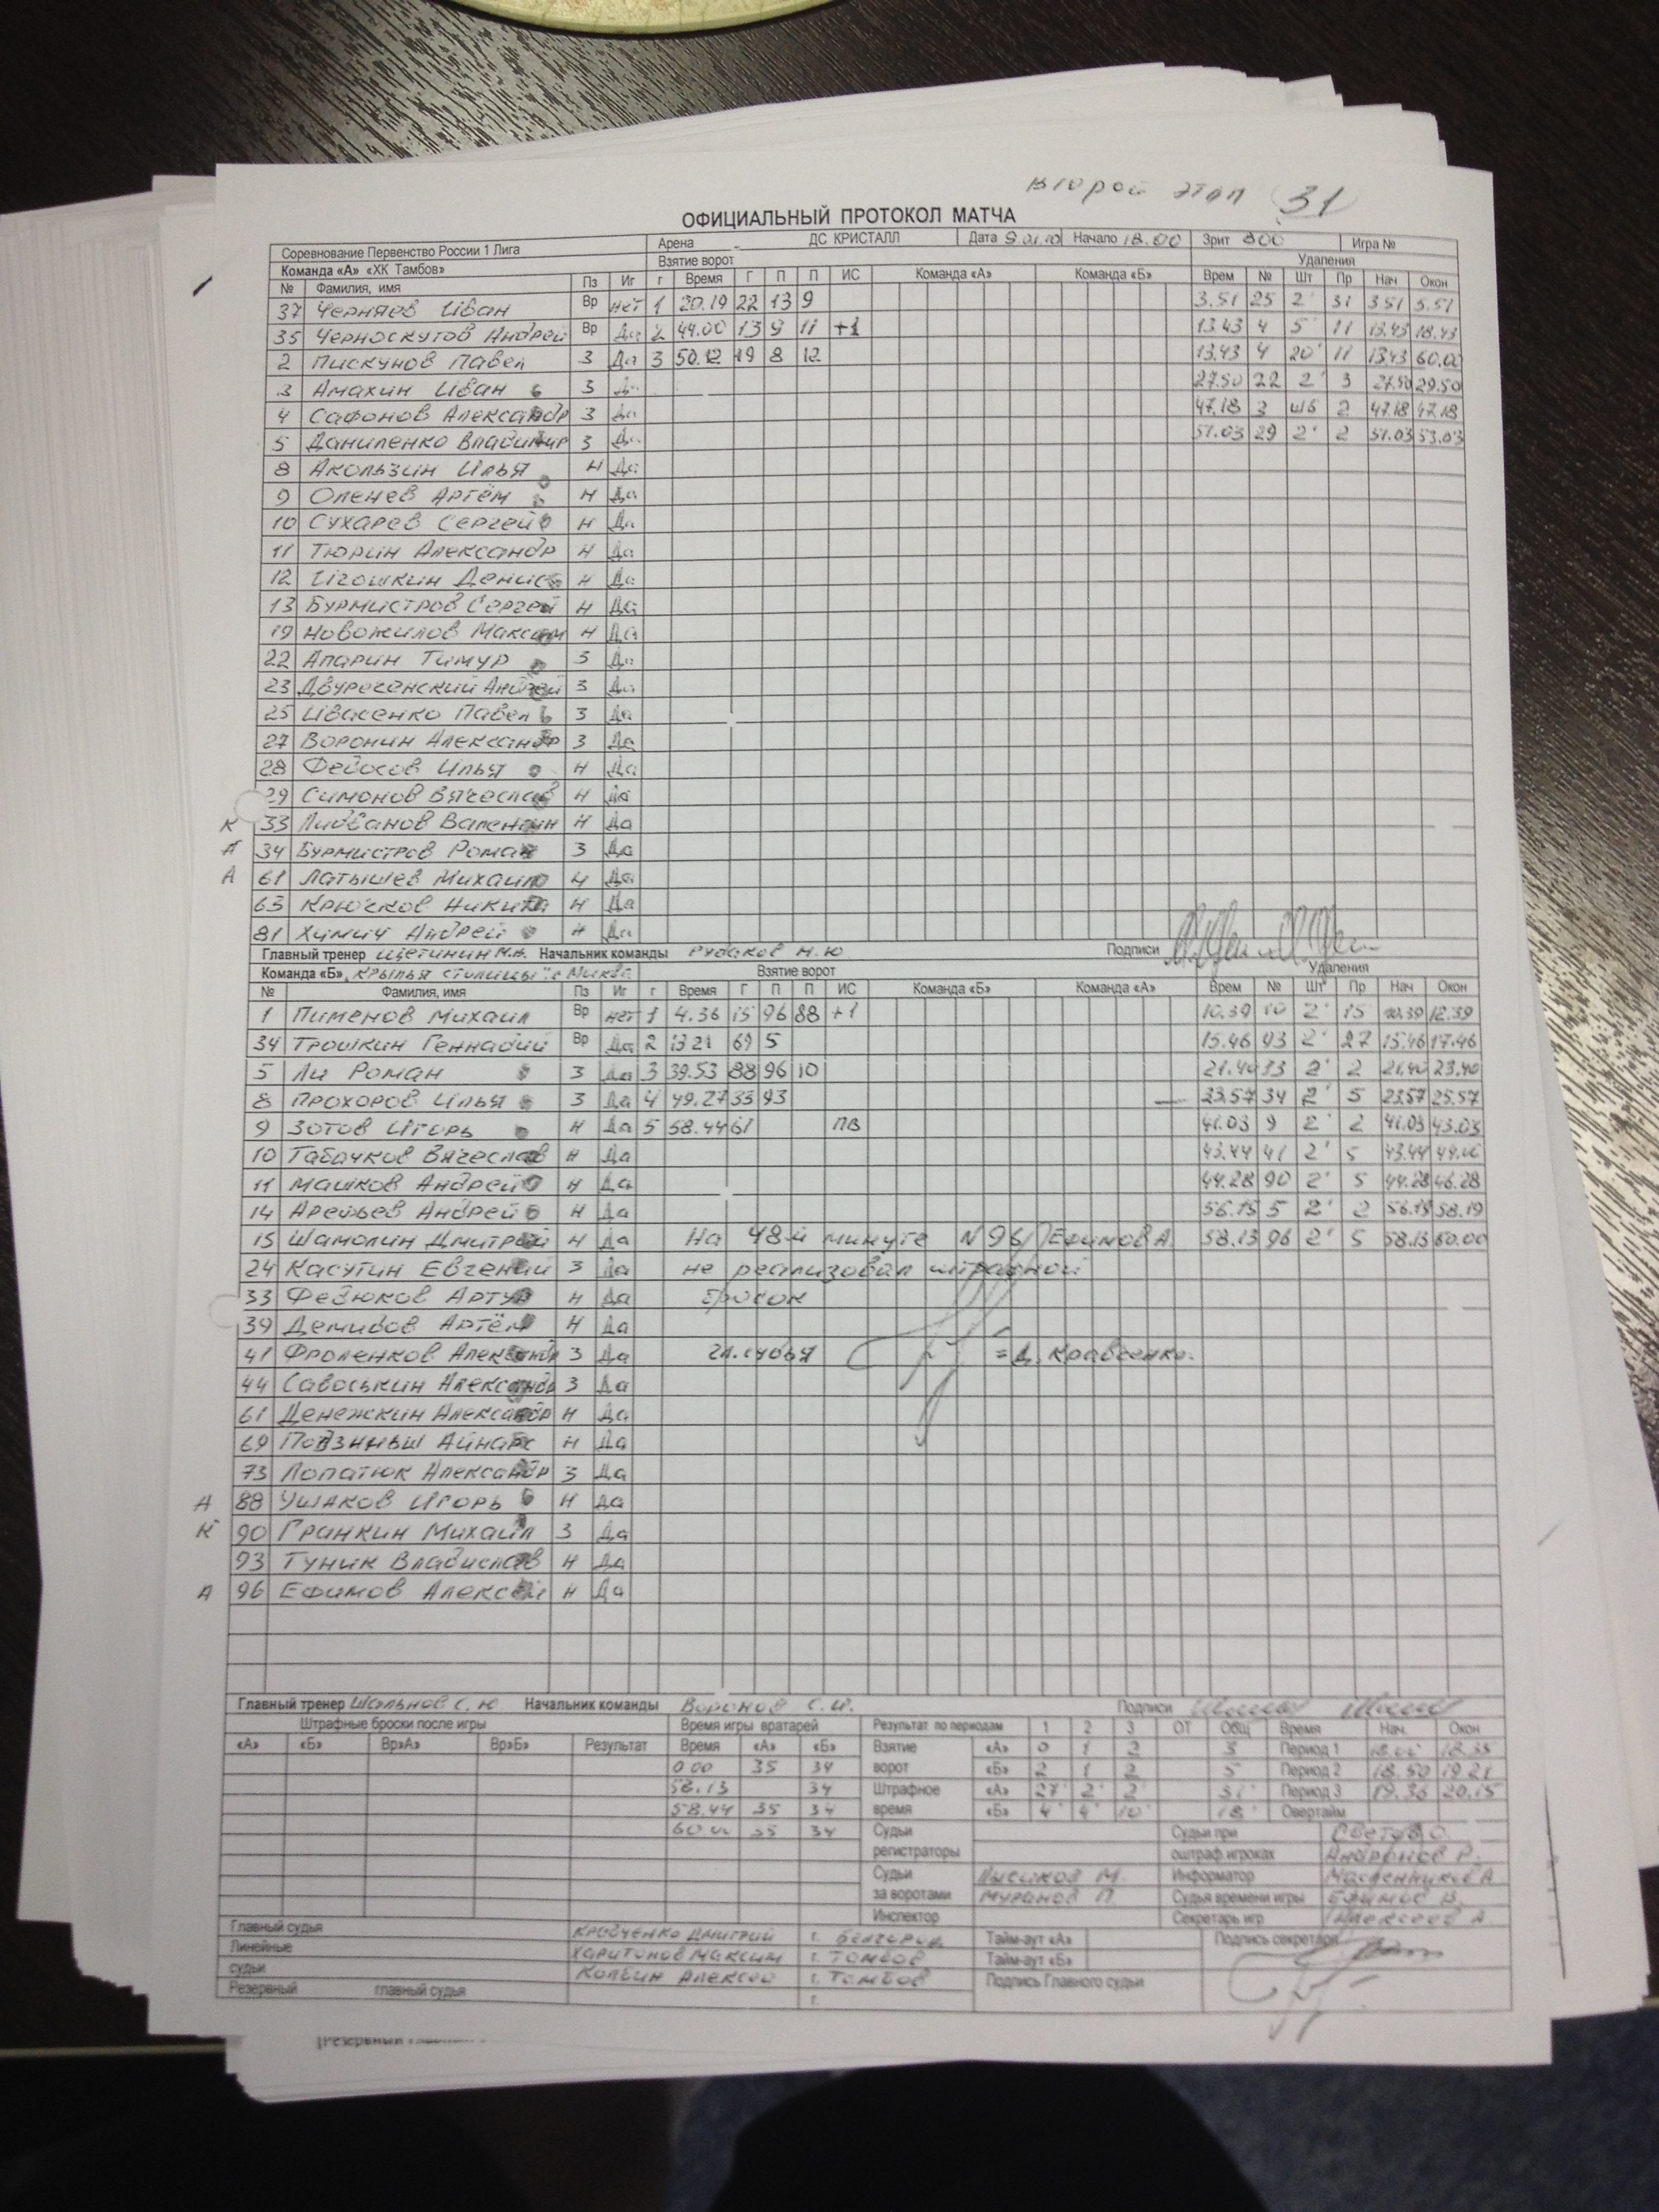 второй этап 31
ОФИЦИАЛЬНЫЙ ПРОТОКОЛ МАТЧА
Соревнование Первенство России 1 Лига Арена ДС КРИСТАЛЛ Дата 9.01.10 Начало 18.00 Зрит 800 Игра №
Команда «А» «ХК Тамбов» Взятие ворот Удаления
№ Фамилия, имя Пз Иг г Время Г П П ИС Команда «А» Команда «Б» Врем № Шт Пр Нач Окон
37 Черняев Иван Вр нет 1 20.19 22 13 9 3.51 25 2' 31 3.51 5.51
35 Черноскутов Андрей Вр Да 2 44.00 13 9 11 +1 13.43 4 5' 11 13.43 18.43
2 Пискунов Павел З Да 3 50.12 19 8 12 13.43 4 20' 11 13.43 60.00
3 Амахин Иван З Да 27.50 22 2' 3 27.50 29.50
4 Сафонов Александр З Да 47.18 3 шб 2 47.18 47.18
5 Даниленко Владимир З Да 51.03 29 2' 2 51.03 53.03
8 Акользин Илья Н Да
9 Оленев Артём Н Да
10 Сухарев Сергей Н Да
11 Тюрин Александр Н Да
12 Игошкин Денис Н Да
13 Бурмистров Сергей Н Да
19 Новожилов Максим Н Да
22 Апарин Тимур З Да
23 Двуреченский Андрей З Да
25 Ивасенко Павел З Да
27 Воронин Александр З Да
28 Федосов Илья Н Да
29 Симонов Вячеслав Н Да
К 33 Валентин Н Да
А 34 Бурмистров Роман З Да
А 61 Латышев Михаил Н Да
63 Крючков Никита Н Да
81 Химич Андрей Н Да
Главный тренер Щетинин М.В. Начальник команды Рудаков Н.Ю Подписи
Команда «Б» "Крылья столицы" г. Москва Взятие ворот Удаления
№ Фамилия, имя Пз Иг г Время Г П П ИС Команда «Б» Команда «А» Врем № Шт Пр Нач Окон
1 Пименов Михаил Вр нет 1 4.36 15 96 88 +1 10.39 10 2' 15 10.39 12.39
34 Трошкин Геннадий Вр Да 2 13 21 69 5 15.46 93 2' 27 15.46 17.46
5 Ли Роман З Да 3 39.53 88 96 10 21.40 33 2' 2 21.40 23.40
8 Прохоров Илья З Да 4 49.27 33 93 23.57 34 2' 5 23.57 25.57
9 Зотов Игорь Н Да 5 58.44 61 ПВ 41.03 9 2' 2 41.03 43.03
10 Табачков Вячеслав Н Да 43.44 41 2' 5 43.44 44.00
11 Машков Андрей Н Да 44.28 90 2' 5 44.28 46.28
14 Арефьев Андрей Н Да 56.15 5 2' 2 56.15 58.19
15 Шамолин Дмитрий Н Да На 48й минуте №96 Ефимов А. 58.13 96 2' 5 58.13 60.00
24 Касутин Евгений З Да не реализовал штрафной
33 Федюков Артур Н Да бросок
39 Демидов Артём Н Да
41 Фроленков Александр З Да гл.судья = Д. Кравченко.
44 Савоськин Александр З Да
61 Денежкин Александр Н Да
69 Подзиньш Айнарс Н Да
73 Лопатюк Александр З Да
А 88 Ушаков Игорь Н Да
К 90 Гранкин Михаил З Да
93 Туник Владислав Н Да
А 96 Ефимов Алексей Н Да
Главный тренер С.Ю Начальник команды Воронов С.И. Подписи
Штрафные броски после игры Время игры вратарей Результат по периодам 1 2 3 ОТ Общ Время Нач. Окон
«А» «Б» Вр«А» Вр«Б» Результат Время «А» «Б» Взятие «А» 0 1 2 3 Период 1 18.00 18.35
0 00 35 34 ворот «Б» 2 1 2 5 Период 2 18.50 19 21
58.13 34 Штрафное «А» 27' 2' 2' 31' Период 3 19.36 20.15
58.44 35 34 время «Б» 4' 4' 10' 18' Овертайм
60.00 35 34 Судьи Судьи при Светов О.
регистраторы оштраф.игроках Андронов Р.
Судьи Лысиков М. Информатор Масленников А
за воротами Муранов П. Судья времени игры Ефимов В.
Инспектор Секретарь игр Алексеев А.
Главный судья Кравченко Дмитрий г. Белгород Тайм-аут «А» Подпись секретаря
Линейные Харитонов Максим г. Тамбов Тайм-аут «Б»
судьи Колбин Алексей г. Тамбов Подпись Главного судьи
Резервный главный судья г.